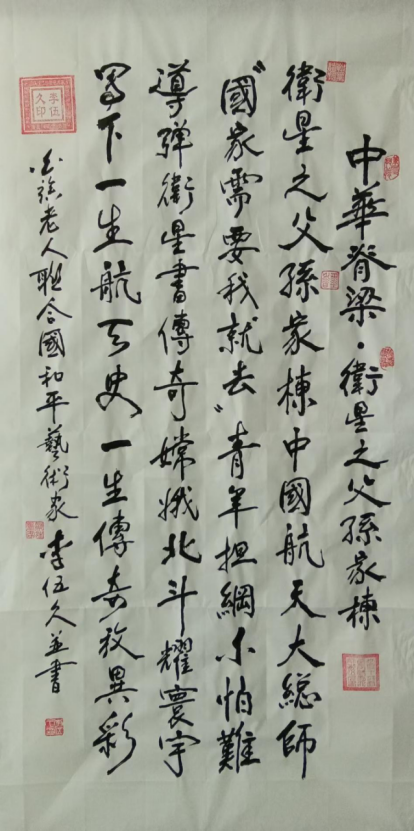 中華脊梁·衛星之父孫家棟
衛星之父孫家棟中國航天大總師
"國家需要我就去"青年担綱不怕難
導彈衛星書傳奇嫦娥北斗耀寰宇
寫下一生航天史一生傳奇放異彩
老人聯合國和平藝術家李伍久並書
李伍久印